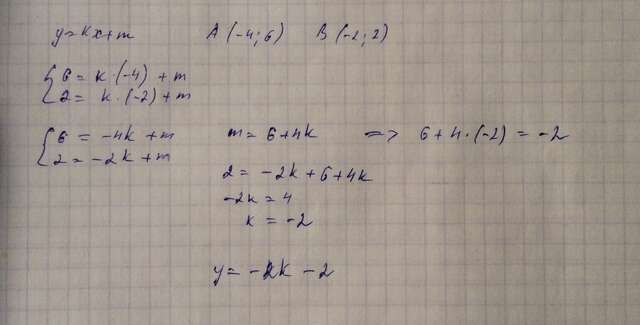 y=kx+m A (-4; 6) B (-2; 2)
{ 6 = k·(-4) + m
2 = k·(-2) + m
{ 6 = -4k + m m = 6+4k => 6+4·(-2) = -2
2 = -2k + m
2 = -2k + 6 + 4k
-2k = 4
k = -2
y = -2k - 2